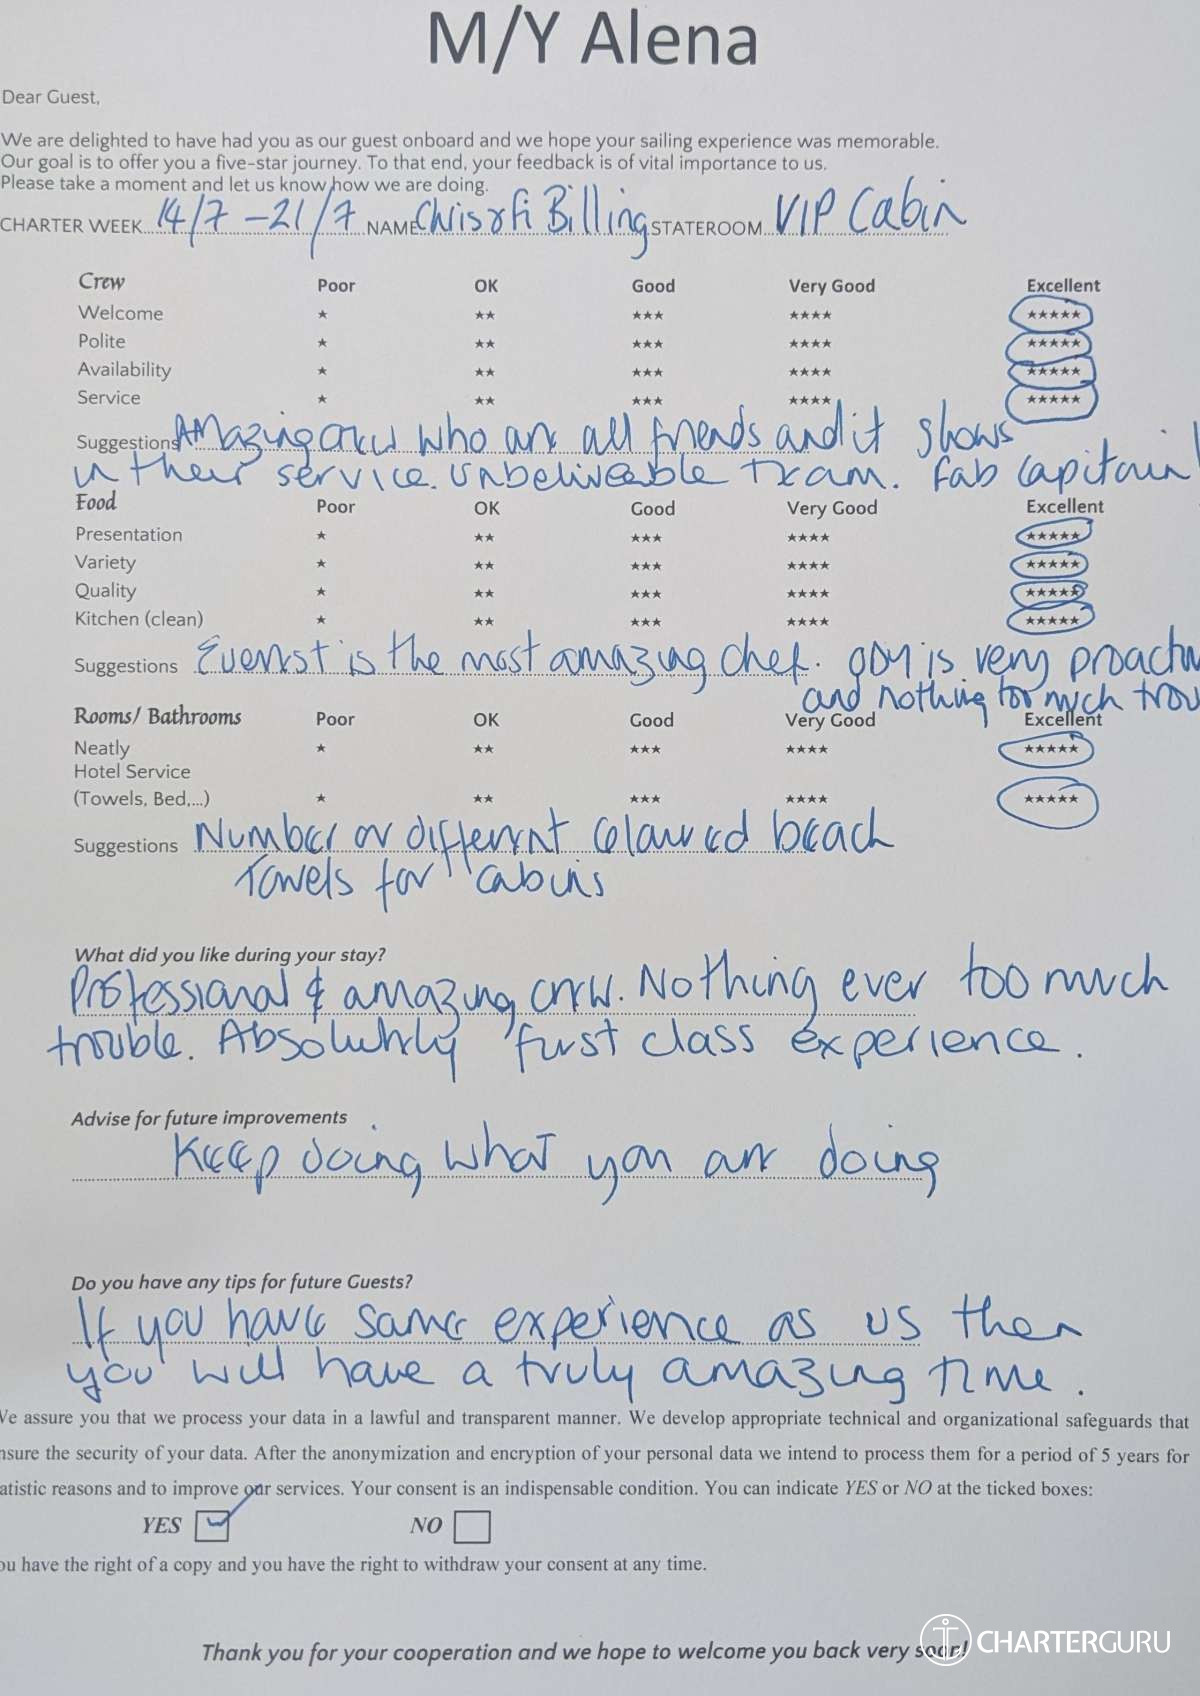 M/Y Alena
Dear Guest,
We are delighted to have had you as our guest onboard and we hope your sailing experience was memorable.
Our goal is to offer you a five-star journey. To that end, your feedback is of vital importance to us.
Please take a moment and let us know how we are doing.
CHARTER WEEK 14/7 - 21/7 NAME Billing STATEROOM VIP Cabin
Crew Poor OK Good Very Good Excellent
Welcome ★ ★★ ★★★ ★★★★ ★★★★★
Polite ★ ★★ ★★★ ★★★★ ★★★★★
Availability ★ ★★ ★★★ ★★★★ ★★★★★
Service ★ ★★ ★★★ ★★★★ ★★★★★
Suggestions Amazing crew who are all friends and it shows
in their service. Unbeliveable team. Fab capitain!
Food Poor OK Good Very Good Excellent
Presentation ★ ★★ ★★★ ★★★★ ★★★★★
Variety ★ ★★ ★★★ ★★★★ ★★★★★
Quality ★ ★★ ★★★ ★★★★ ★★★★★
Kitchen (clean) ★ ★★ ★★★ ★★★★ ★★★★★
Suggestions is the most amazing chef. is very proactiv
and nothing too much trou
Rooms/ Bathrooms Poor OK Good Very Good Excellent
Neatly ★ ★★ ★★★ ★★★★ ★★★★★
Hotel Service
(Towels, Bed,...) ★ ★★ ★★★ ★★★★ ★★★★★
Suggestions Number or different coloured beach
Towels for cabins
What did you like during your stay?
Professional & amazing crew. Nothing ever too much
trouble. Absolutely first class experience.
Advise for future improvements
Keep doing what you are doing
Do you have any tips for future Guests?
If you have same experience as us then
you will have a truly amazing time.
We assure you that we process your data in a lawful and transparent manner. We develop appropriate technical and organizational safeguards that
nsure the security of your data. After the anonymization and encryption of your personal data we intend to process them for a period of 5 years for
atistic reasons and to improve our services. Your consent is an indispensable condition. You can indicate YES or NO at the ticked boxes:
YES NO
ou have the right of a copy and you have the right to withdraw your consent at any time.
Thank you for your cooperation and we hope to welcome you back very soon!
CHARTERGURU